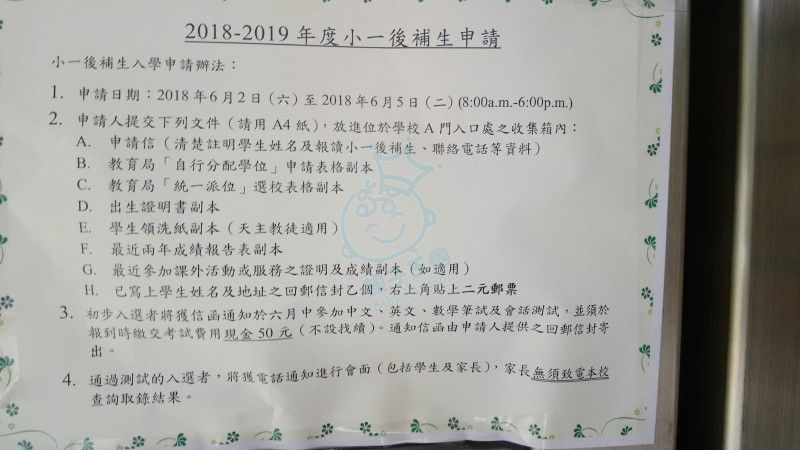 2018-2019 年度小一後補生申請
小一後補生入學申請辦法：
1. 申請日期：2018 年 6 月 2 日（六）至 2018 年 6 月 5 日（二）(8:00a.m.-6:00p.m.)
2. 申請人提交下列文件（請用 A4 紙），放進位於學校 A 門入口處之收集箱內：
A. 申請信（清楚註明學生姓名及報讀小一後補生、聯絡電話等資料）
B. 教育局「自行分配學位」申請表格副本
C. 教育局「統一派位」選校表格副本
D. 出生證明書副本
E. 學生領洗紙副本（天主教徒適用）
F. 最近兩年成績報告表副本
G. 最近參加課外活動或服務之證明及成績副本（如適用）
H. 已寫上學生姓名及地址之回郵信封乙個，右上角貼上二元郵票
3. 初步入選者將獲信函通知於六月中參加中文、英文、數學筆試及會話測試，並須於
報到時繳交考試費用現金 50 元（不設找續）。通知信函由申請人提供之回郵信封寄
出。
4. 通過測試的入選者，將獲電話通知進行會面（包括學生及家長），家長無須致電本校
查詢取錄結果。